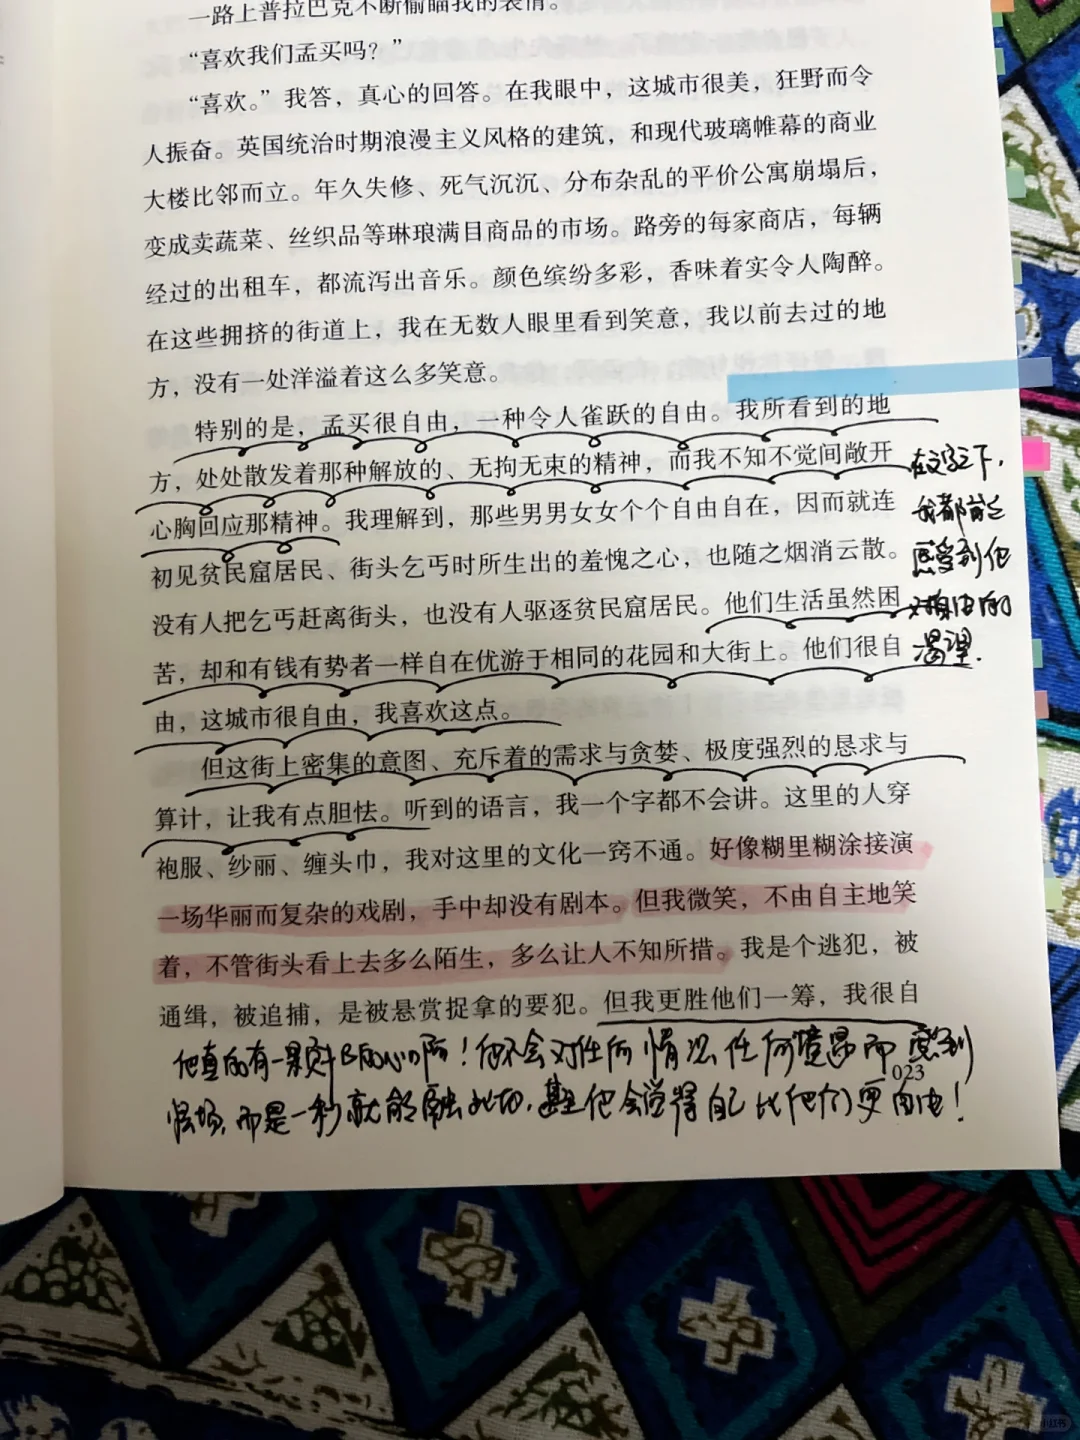 一路上普拉巴克不断偷瞄我的表情。
“喜欢我们孟买吗？”
“喜欢。”我答，真心的回答。在我眼中，这城市很美，狂野而令
人振奋。英国统治时期浪漫主义风格的建筑，和现代玻璃帷幕的商业
大楼比邻而立。年久失修、死气沉沉、分布杂乱的平价公寓崩塌后，
变成卖蔬菜、丝织品等琳琅满目商品的市场。路旁的每家商店，每辆
经过的出租车，都流泻出音乐。颜色缤纷多彩，香味着实令人陶醉。
在这些拥挤的街道上，我在无数人眼里看到笑意，我以前去过的地
方，没有一处洋溢着这么多笑意。
特别的是，孟买很自由，一种令人雀跃的自由。我所看到的地
方，处处散发着那种解放的、无拘无束的精神，而我不知不觉间敞开
心胸回应那精神。我理解到，那些男男女女个个自由自在，因而就连
初见贫民窟居民、街头乞丐时所生出的羞愧之心，也随之烟消云散。
没有人把乞丐赶离街头，也没有人驱逐贫民窟居民。他们生活虽然困
苦，却和有钱有势者一样自在优游于相同的花园和大街上。他们很自
由，这城市很自由，我喜欢这点。
但这街上密集的意图、充斥着的需求与贪婪、极度强烈的恳求与
算计，让我有点胆怯。听到的语言，我一个字都不会讲。这里的人穿
袍服、纱丽、缠头巾，我对这里的文化一窍不通。好像糊里糊涂接演
一场华丽而复杂的戏剧，手中却没有剧本。但我微笑，不由自主地笑
着，不管街头看上去多么陌生，多么让人不知所措。我是个逃犯，被
通缉，被追捕，是被悬赏捉拿的要犯。但我更胜他们一筹，我很自
023
下，
我都能
感受到他
对自由的
渴望.
他真的有一颗的心啊！他不会对任何情况任何境界而感到
怯场，而是一秒就能融此切，甚至他会觉得自己比他们更自由！
小红书